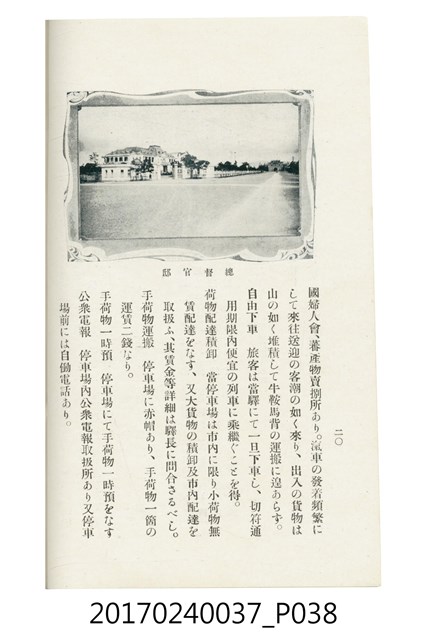 總督官邸
二〇
國婦人會、蕃産物賣捌所あり。滊車の發着頻繁に
して來往送迎の客潮の如く來り、出入の貨物は
山の如く堆積して牛鞍馬背の運搬に遑あらず。
自由下車　旅客は當驛にて一旦下車し、切符通
用期限内便宜の列車に乘繼ぐことを得。
荷物配達積卸　當停車場は市内に限り小荷物無
賃配達をなす、又大貨物の積卸及市内配達を
取扱ふ、其賃金等詳細は驛長に問合さるべし。
手荷物運搬　停車場に赤帽あり、手荷物一箇の
運賃二錢なり。
手荷物一時預　停車場にて手荷物一時預をなす
公衆電報　停車場内公衆電報取扱所あり又停車
場前には自働電話あり。
20170240037_P038